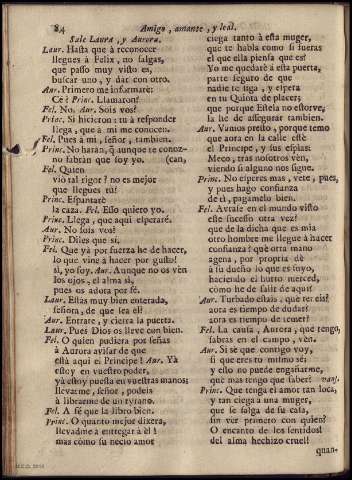 84 Amigo, amante, y leal.
Sale Laura, y Aurora.
Laur. Hasta que à reconocer
llegues à Felix, no salgas,
que passo muy visto es,
buscar uno, y dàr con otro.
Aur. Primero me informarè:
Ce è Princ. Llamaron?
Fel. No. Aur. Sois vos?
Princ. Si hicieron: tu à responder
llega, que à mi me conocen.
Fel. Pues à mi, señor, tambien.
Princ. No haràn, q̃ aunque te conoz-
no sabràn que soy yo. (can,
Fel. Quien
viò tal rigor? no es mejor
que llegues tù?
Princ. Espantarè
la caza. Fel. Esso quiero yo.
Princ. Llega, que aqui esperarè.
Aur. No sois vos?
Princ. Diles que si.
Fel. Què yà por fuerza he de hacer,
lo que vine à hacer por gusto!
si, yo soy. Aur. Aunque no os vèn
los ojos, el alma si,
pues os adora por fè.
Laur. Estàs muy bien enterada,
señora, de que sea èl?
Aur. Entrate, y cierra la puerta.
Laur. Pues Dios os lleve con bien.
Fel. O quien pudiera por señas
à Aurora avisar de que
està aqui el Principe! Aur. Yà
estoy en vuestro poder,
yà estoy puesta en vuestras manos;
llevarme, señor, podeis
à librarme de un tyrano.
Fel. A fè que la libro bien.
Princ. O quanto mejor dixera,
llevadme à entregar à èl!
mas como su necio amor
ciega tanto à esta muger,
que te habla como si fueras
el que ella piensa que es?
Yo me quedarè à esta puerta,
parte seguro de que
nadie te siga, y espera
en tu Quinta de placer;
que porque Estela no estorve,
la he de assegurar tambien.
Aur. Vamos presto, porque temo
que aora en la calle estè
el Principe, y sus espias.
Meco, tras nosotros vèn,
viendo si alguno nos sigue.
Princ. No esperes mas, vete, pues,
y pues hago confianza
de tì, pagamelo bien.
Fel. Avràse en el mundo visto
este sucesso otra vez!
que de la dicha que es mia
otro hombre me llegue à hacer
confianza! què otra mano
agena, por propria dè
à su dueño lo que es suyo,
haciendo el hurto merced,
còmo he de salir de aqui?
Aur. Turbado estais, què teneis?
aora es tiempo de dudar?
aora es tiempo de temer?
Fel. La causa, Aurora, que tengo,
sabràs en el campo, vèn.
Aur. Si sè que contigo voy,
si que eres tu mismo sè;
y esto no puede engañarme,
què mas tengo que saber? vans.
Princ. Que tenga el amor tan loca,
y tan ciega à una muger,
que se salga de su casa,
sin ver primero con quien?
O encanto de los sentidos!
del alma hechizo cruel!
quan-